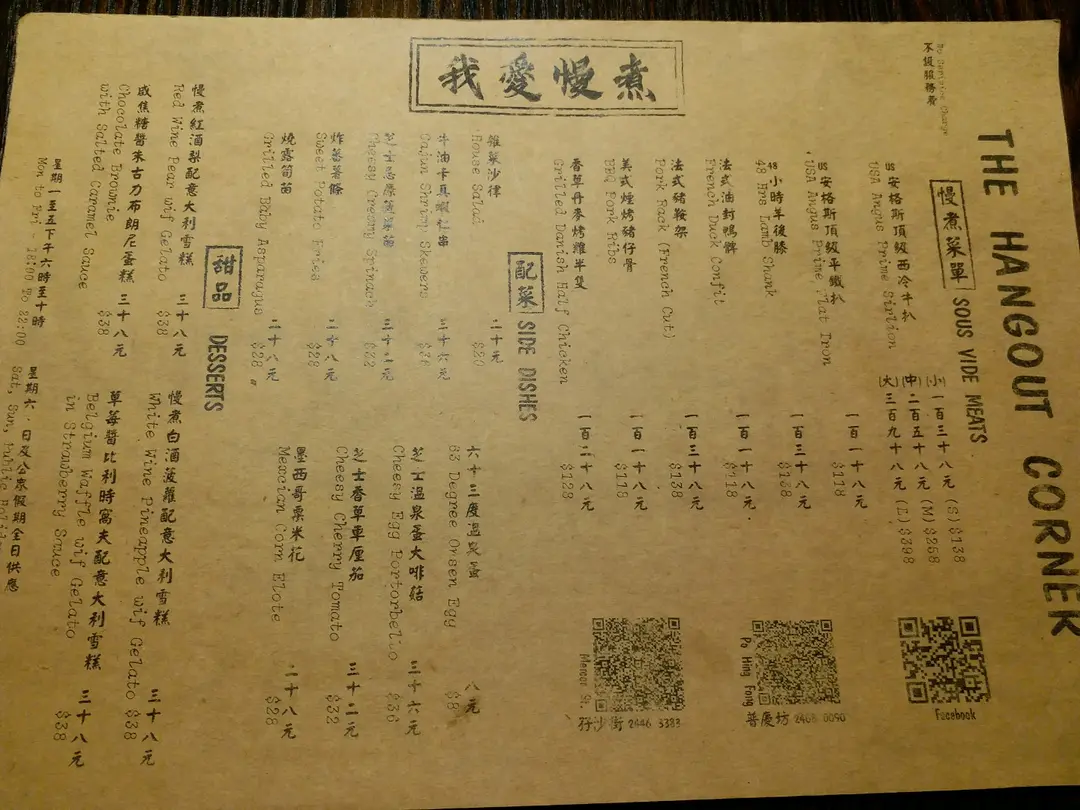 THE HANGOUT CORNER
No Service Charge
不設服務費
我愛慢煮
慢煮菜單 SOUS VIDE MEATS
US 安格斯頂級西冷牛扒
USA Angus Prime Sirlion
(小) 一百三十八元 (S) $138
(中) 二百五十八元 (M) $258
(大) 三百九十八元 (L) $398
US 安格斯頂級平鐵扒 一百一十八元
USA Angus Prime Flat Iron $118
48 小時羊後膝 一百三十八元
48 Hrs Lamb Shank $138
法式油封鴨髀 一百一十八元
French Duck Confit $118
法式豬鞍架 一百三十八元
Pork Rack (French Cut) $138
美式煙烤豬仔骨 一百一十八元
BBQ Pork Ribs $118
香草丹麥烤雞半隻 一百二十八元
Grilled Danish Half Chicken $128
Facebook
Po Hing Fong
普慶坊 2468 0090
Mercer St.
孖沙街 2446 3383
配菜 SIDE DISHES
雜菜沙律 二十元
House Salad $20
牛油卡真蝦仁串 三十六元
Cajun Shrimp Skewers
Cheesy Creamy Spinach
炸蕃薯條 二十八元
Sweet Potato Fries $28
燒露筍苗 二十八元
Grilled Baby Asparagus $28
六十三度温泉蛋 八元
63 Degree Onsen Egg $8
芝士温泉蛋大啡菇 三十六元
Cheesy Egg Portorbello $36
芝士香草車厘茄 三十二元
Cheesy Cherry Tomato $32
墨西哥粟米花 二十八元
Mexcian Corn Elote $28
甜品 DESSERTS
慢煮紅酒梨配意大利雪糕 三十八元
Red Wine Pear wif Gelato $38
咸焦糖醬朱古力布朗尼蛋糕 三十八元
Chocolate Brownie
with Salted Caramel Sauce $38
慢煮白酒菠蘿配意大利雪糕 三十八元
White Wine Pineapple wif Gelato $38
草莓醬比利時窩夫配意大利雪糕 三十八元
Belgium Waffle wif Gelato
in Strawberry Sauce $38
星期一至五下午六時至十時
Mon to Fri 18:00 to 22:00
星期六、日及公眾假期全日供應
Sat, Sun, Public